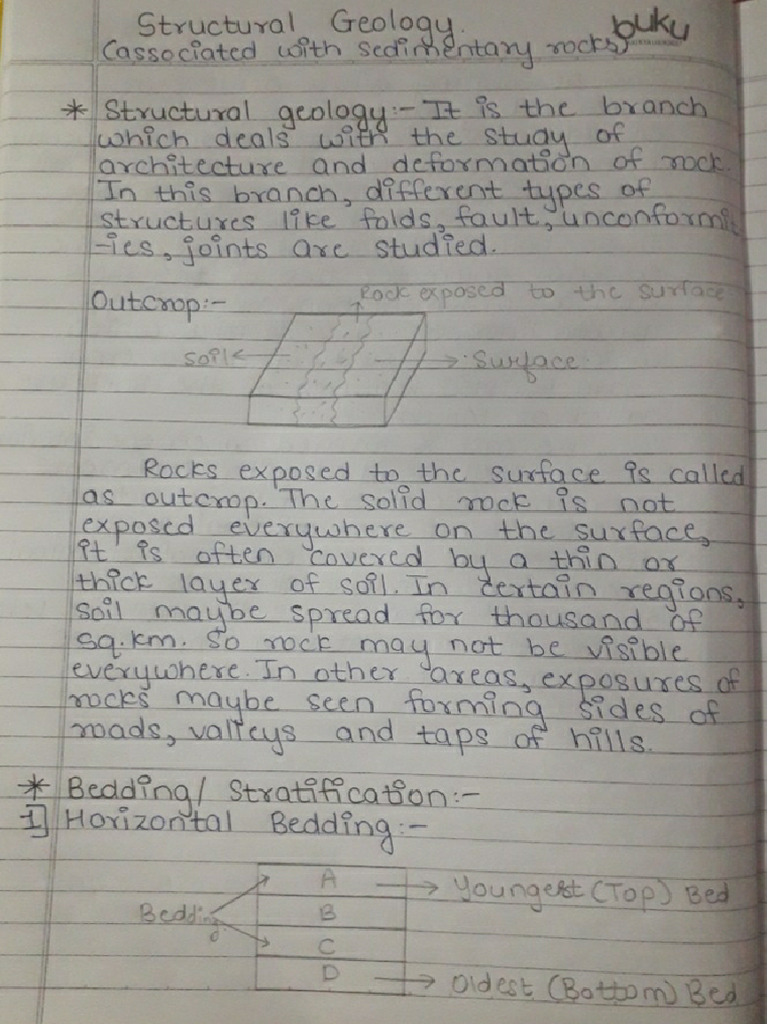 Structural Geology.
buku
(associated with sedimentary rocks)
* Structural geology:- It is the branch
which deals with the study of
architecture and deformation of rock.
In this branch, different types of
structures like folds, fault, unconformit
-ies, joints are studied.
Rock exposed to the surface
Outcrop:-
soil
Surface.
Rocks exposed to the surface is called
as outcrop. The solid rock is not
exposed everywhere on the surface,
it is often covered by a thin or
thick layer of soil. In certain regions,
soil maybe spread for thousand of
sq.km. So rock may not be visible
everywhere. In other areas, exposures of
rocks maybe seen forming sides of
roads, valleys and taps of hills.
* Bedding/ Stratification:-
1] Horizontal Bedding:-
A Youngest (Top) Bed
Bedding B
C
D Oldest (Bottom) Bed